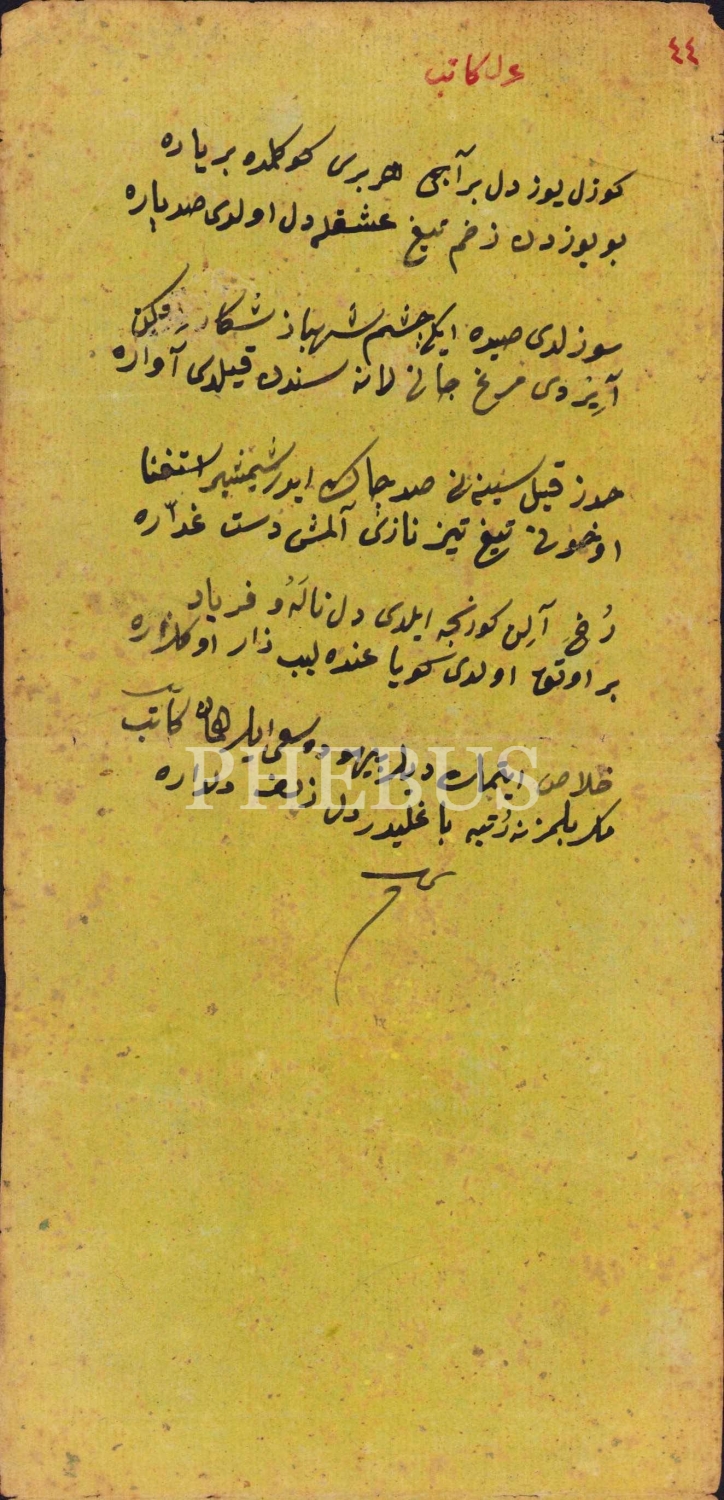 ٤٤
كاتب
كوزل يوز دل بر آنى هر برى كوكلمده بر ياره
بو يوزدن زخم تيغ عشقله دل اولدى صد پاره
سوزلدى صيده ايكى چشم شهباز شكار
مرغ جانى لانه سندن قيلدى آواره
حذر قيل سينه نى صد چاك ايدر شمشير استغنا
او خونى تيغ تيز نازى آلمش دست غدّاره
رُخِ آلِن كورنجه ايلدى دل نالهٔ و فرياد
بر اولدى كويا عندليب زار او كلزاره
خلاص ايتمك ديلر بيهوده سعى ايلر كاتب
مكر بلمز نه رُتبه باغليدر دل زلف دلداره
PHEBUS